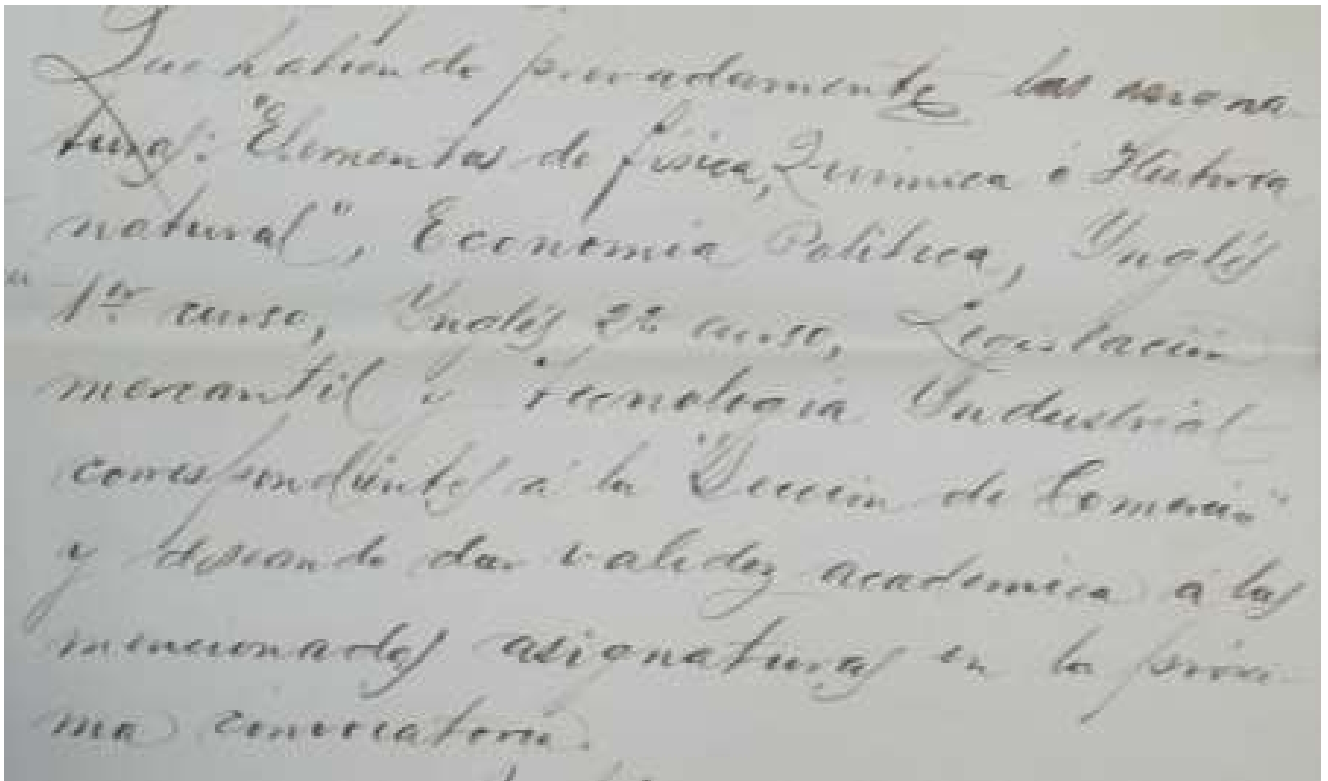 Que habiendo privadamente las asigna-
turas: "Elementos de física, Química é Historia
natural", Economia Politica, Ynglés
1er curso, Ynglés 2º curso, Legislación
mercantil y Tecnologia Yndustrial
correspondientes á la "Sección de Comercio"
y deseando dar validez academica á las
mencionadas asignaturas en la próxi-
ma convocatoria.